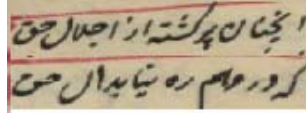 انچنان پر گشته از اجلال حق
که درو هم ره نیابد ال حق